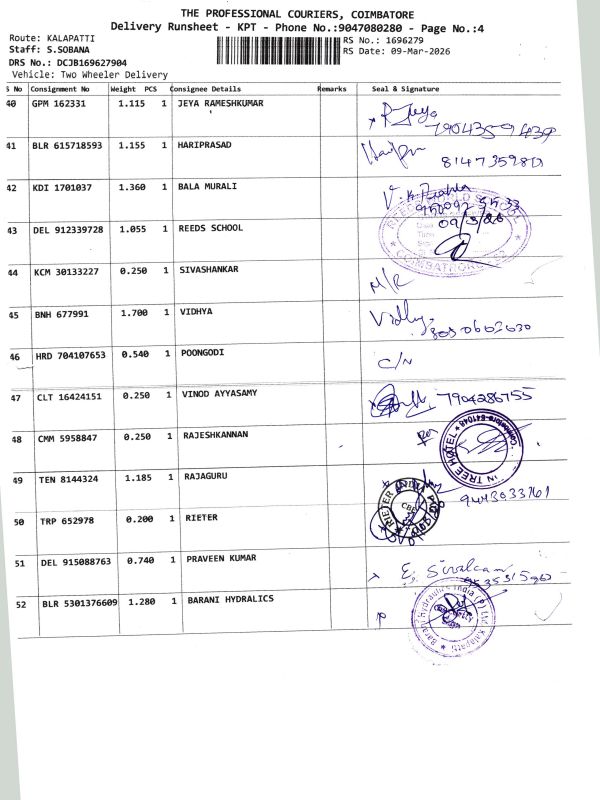 THE PROFESSIONAL COURIERS, COIMBATORE
Delivery Runsheet - KPT - Phone No.:9047080280 - Page No.:4
Route: KALAPATTI
RS No.: 1696279
Staff: S.SOBANA
RS Date: 09-Mar-2026
DRS No.: DCJB169627904
Vehicle: Two Wheeler Delivery
S No Consignment No Weight PCS Consignee Details Remarks Seal & Signature
40 GPM 162331 1.115 1 JEYA RAMESHKUMAR
7904359439
41 BLR 615718593 1.155 1 HARIPRASAD
42 KDI 1701037 1.360 1 BALA MURALI
43 DEL 912339728 1.055 1 REEDS SCHOOL
09/3/26
44 KCM 30133227 0.250 1 SIVASHANKAR
N/R
45 BNH 677991 1.700 1 VIDHYA
Vidhy
46 HRD 704107653 0.540 1 POONGODI
C/N
47 CLT 16424151 0.250 1 VINOD AYYASAMY
7904286755
48 CMM 5958847 0.250 1 RAJESHKANNAN
for
IN TREE HOTEL
49 TEN 8144324 1.185 1 RAJAGURU
9443033761
50 TRP 652978 0.200 1 RIETER
RIETER INDIA
51 DEL 915088763 0.740 1 PRAVEEN KUMAR
52 BLR 5301376609 1.280 1 BARANI HYDRALICS
Barani Hydraulics India (P) Ltd. Kalapatti